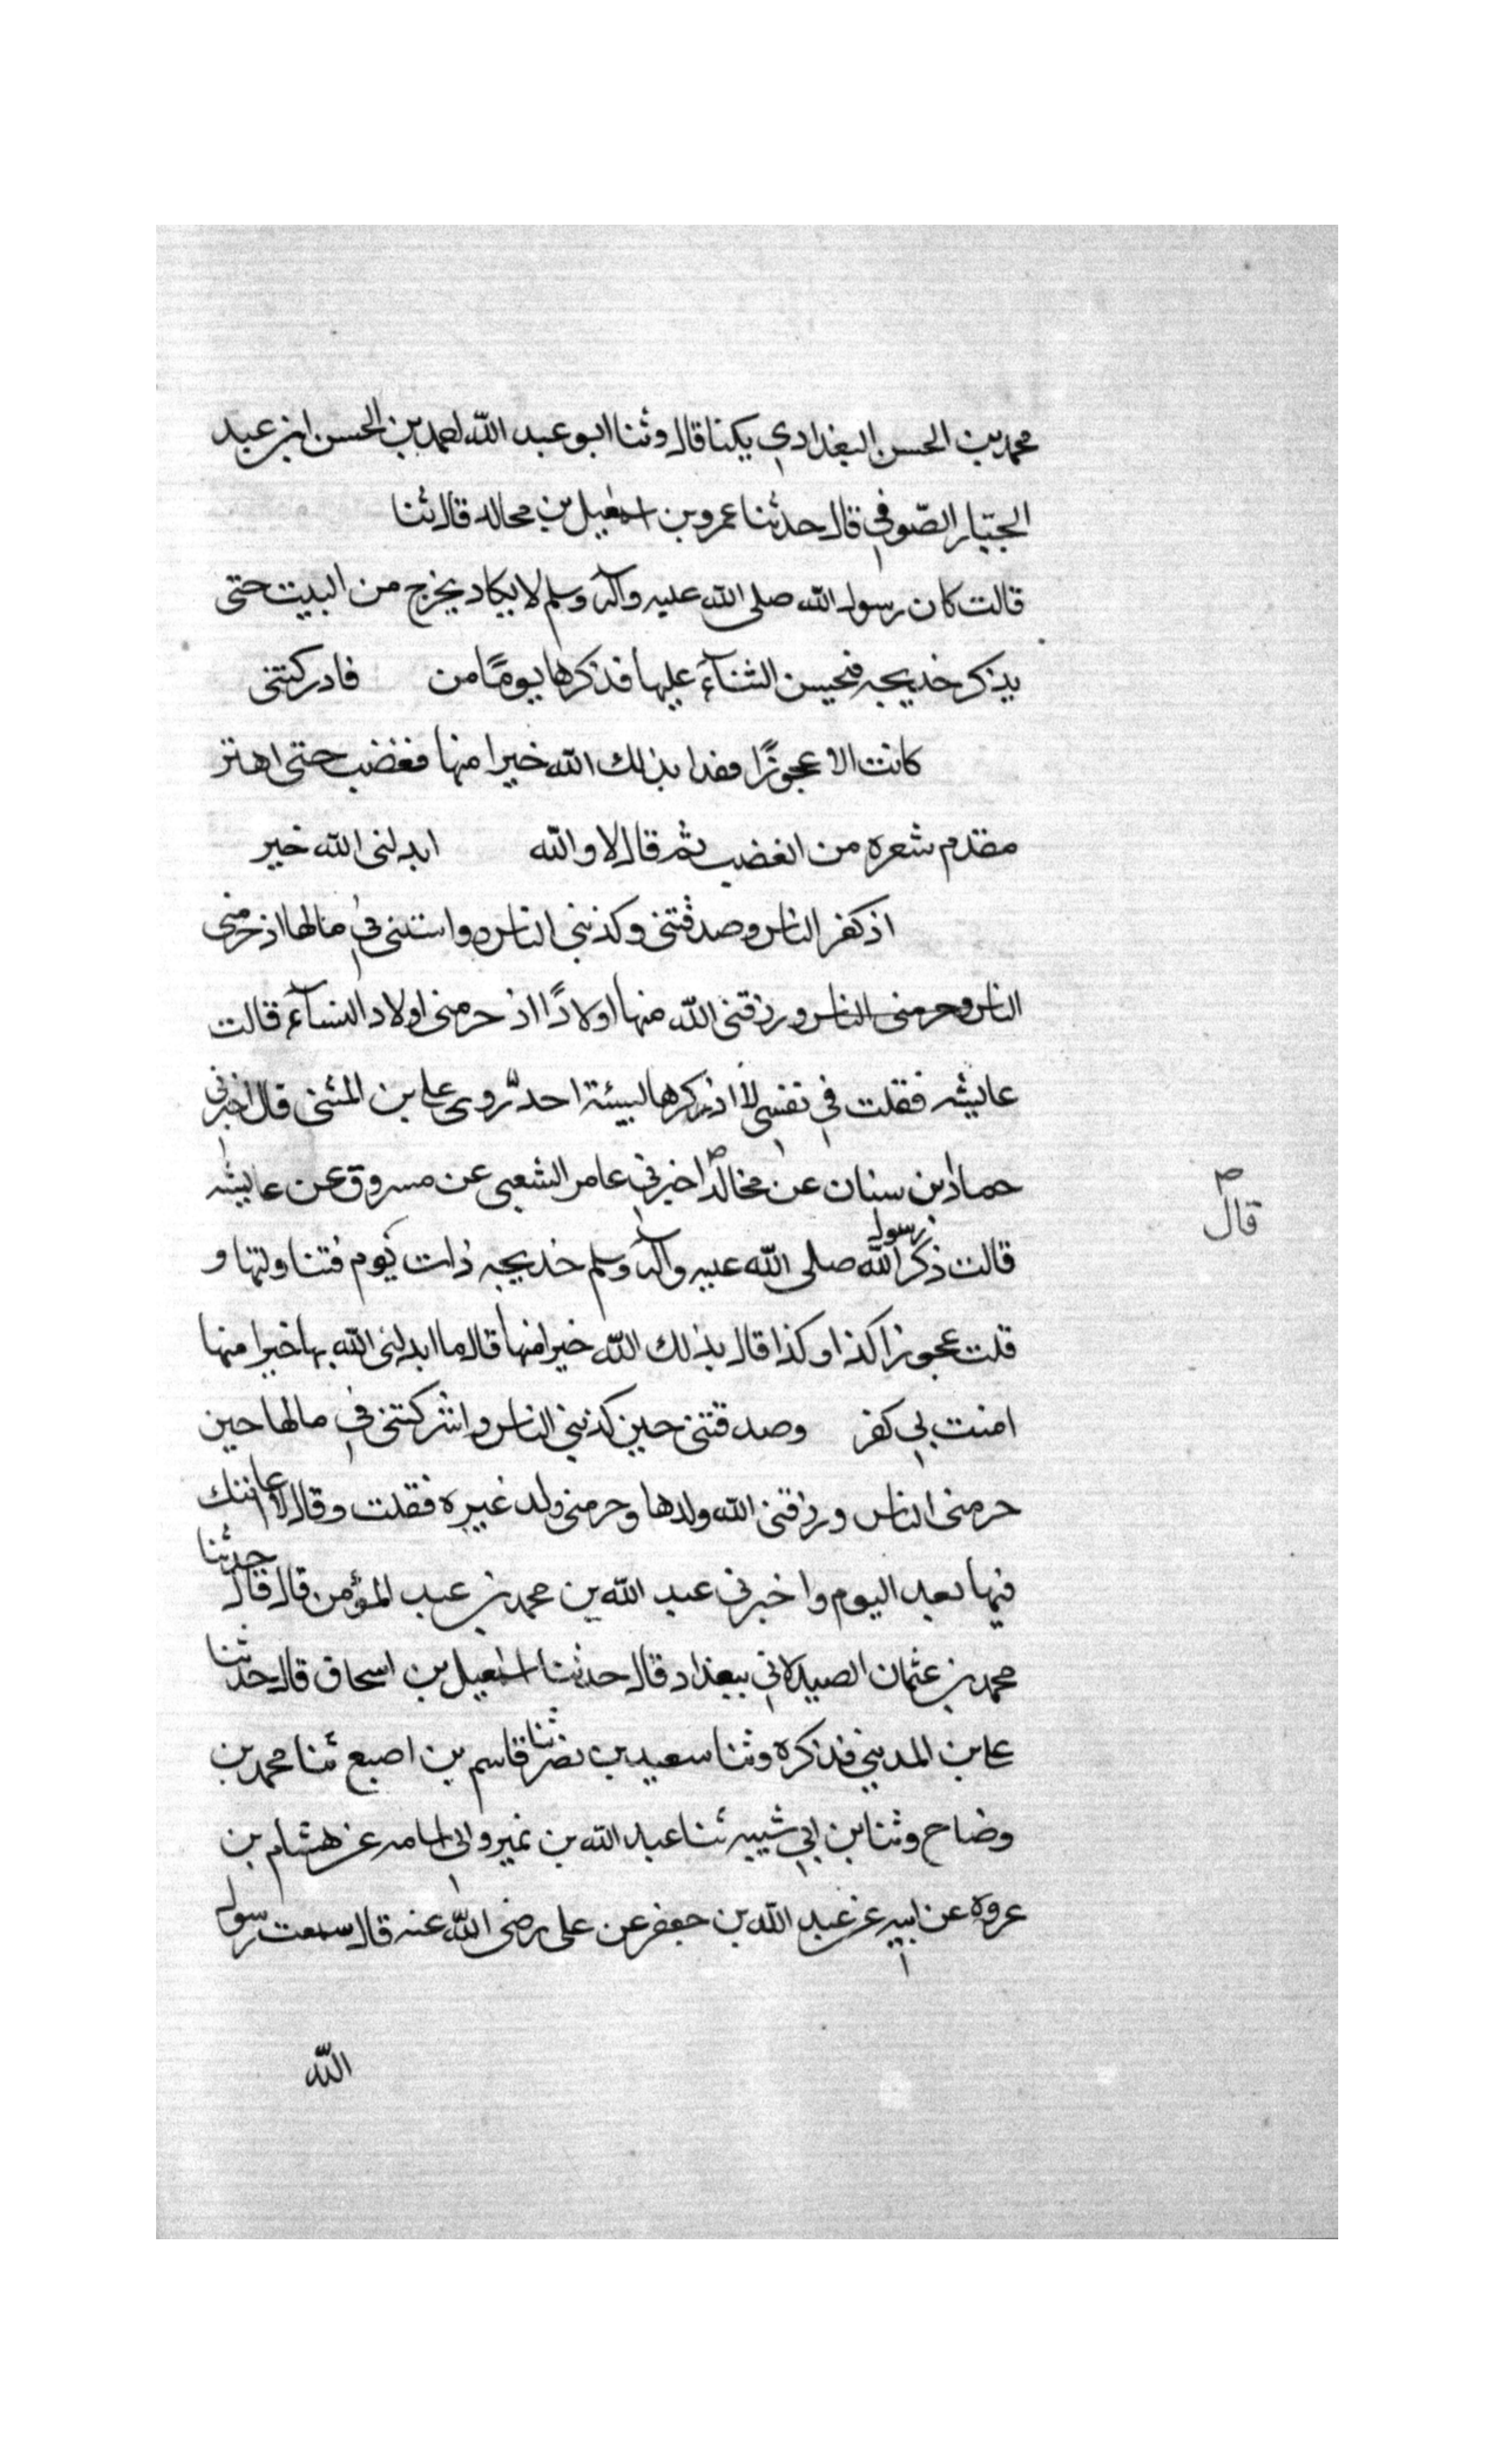 محمد بن الحسن البغدادي يكنا قال وثنا ابو عبد الله احمد بن الحسن ابن عبد
الجبار الصّوفي قال حدثنا عمرو بن اسمعيل بن مجالد قال ثنا
قالت كان رسول الله صلى الله عليه وآله وسلم لا يكاد يخرج من البيت حتى
يذكر خديجه فيحسن الثنآء عليها فذكرها يومًا من فادركتنى
كانت الا عجوزًا فقدا بذلك الله خيرا منها فغضب حتى اهتز
مقدم شعره من الغضب ثم قال لا والله ابدلنى الله خير
اذ كفر الناس وصدقتنى وكذبني الناس وواستنى في مالها اذ حرمنى
الناس وحرمنى الناس ورزقنى الله منها اولادًا اذ حرمنى اولاد النسآء قالت
عايشه فقلت في نفسى لا اذكرها لسيئة احد روى على بن المثنى قال اخبرنى
حماد بن سنان عن مخالد اخبرني عامر الشعبى عن مسروق عن عايشه
قال
قالت ذكر رسول الله صلى الله عليه وآله وسلم خديجه ذات يوم فتناولتها و
قلت عجوزا كذا وكذا قال بذلك الله خيرا منها قال ما ابدلنى الله بها خيرا منها
امنت بي كفر وصدقتنى حين كذبني الناس واشركتنى في مالها حين
حرمنى الناس ورزقنى الله ولدها وحرمنى ولد غيره فقلت وقال لا عاتبتك
فيها بعد اليوم واخبرنى عبد الله بن محمد بن عبد المؤمن قال قال حدثنا
محمد بن عثمان الصيدلاني ببغداد قال حدثنا اسمعيل بن اسحاق قال حدثنا
على بن المديني فذكره وثنا سعيد بن نضر ثنا قاسم بن اصبع ثنا محمد بن
وضاح وثنا بن ابي شيبه ثنا عبد الله بن نمير وابي اسامه عن هشام بن
عروه عن ابيه عن عبد الله بن جعفر عن على رضى الله عنه قال سمعت رسول
الله